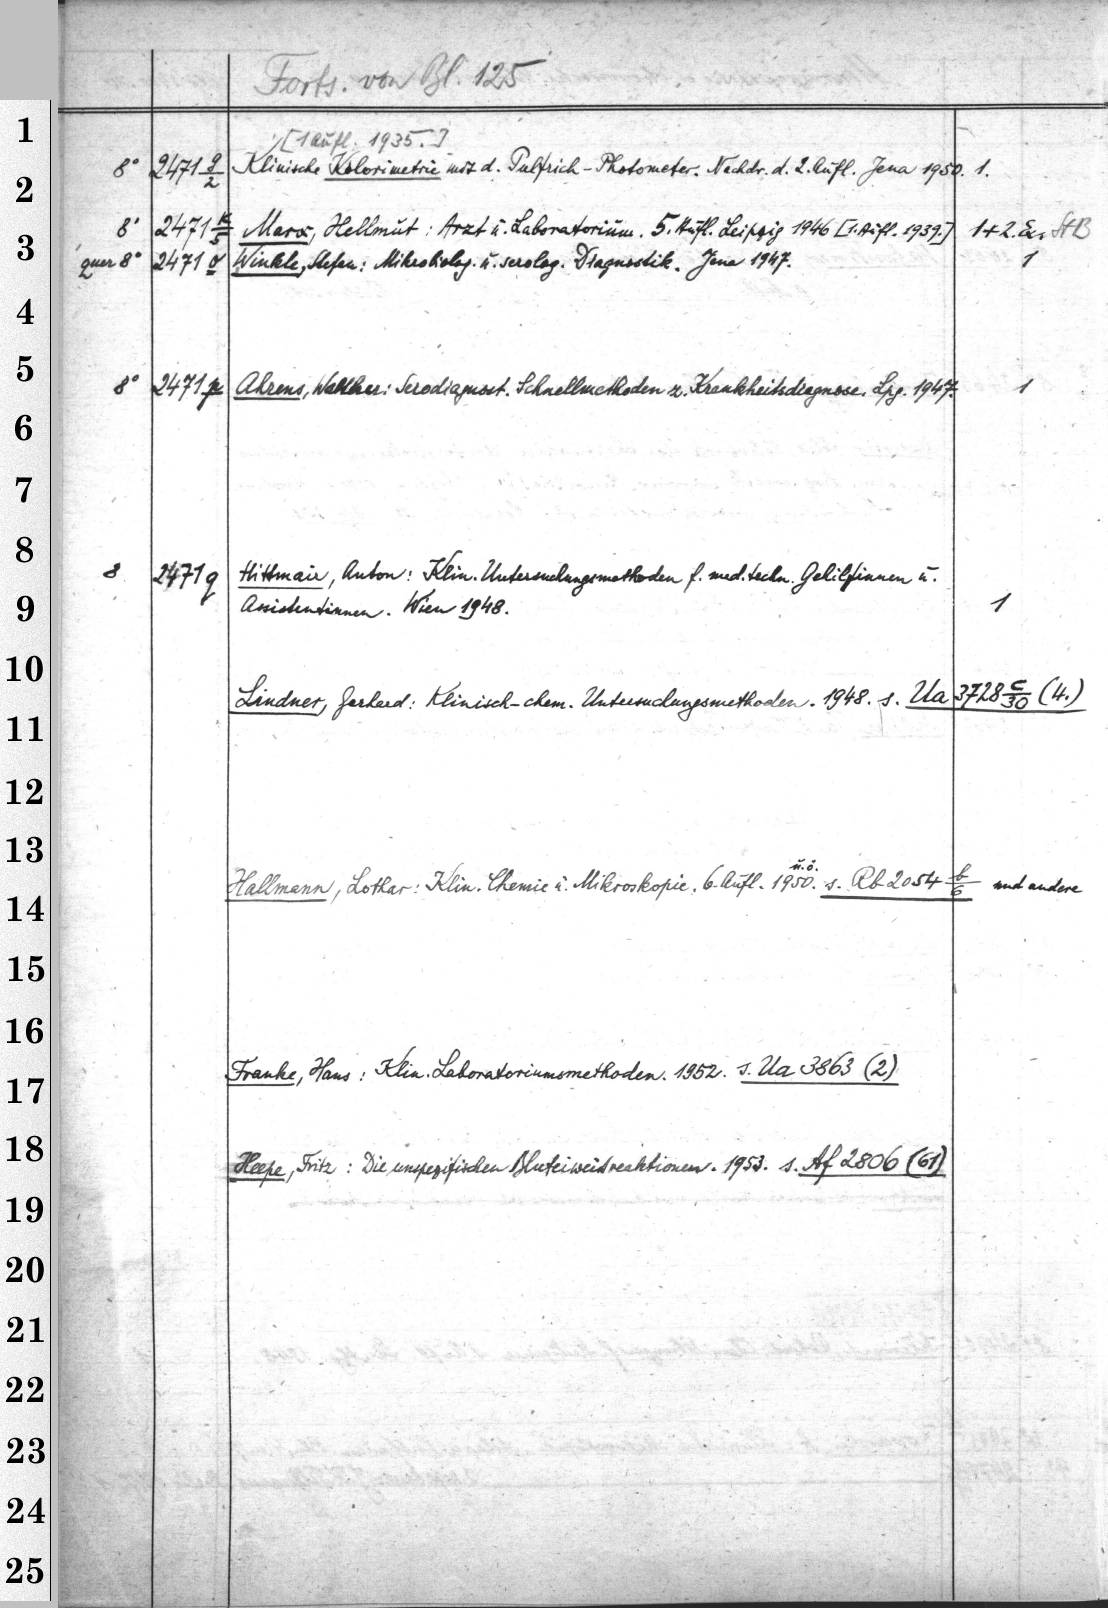 Forts. von Bl. 125
1
[1. Aufl. 1935.]
8° 2471 g/2 Klinische Kolorimetrie mit d. Pulfrich-Photometer. Nachdr. d. 2. Aufl. Jena 1950. 1.
2
8° 2471 k/5 Marx, Hellmut: Arzt u. Laboratorium. 5. Aufl. Leipzig 1946 [1. Aufl. 1939] 1+2. Ex. StB
3
quer 8° 2471 o Winkle, Stefan: Mikrobiolog. u. serolog. Diagnostik. Jena 1947. 1
4
5
8° 2471 p Ahrens, Walther: Serodiagnost. Schnellmethoden z. Krankheitsdiagnose. Lpg. 1947. 1
6
7
8
8 2471 q Hittmair, Anton: Klin. Untersuchungsmethoden f. med. techn. Gehilfinnen u.
9
Assistentinnen. Wien 1948. 1
10
Lindner, Gerhard: Klinisch-chem. Untersuchungsmethoden. 1948. s. Ua 3728 c/30 (4.)
11
12
13
u.ö.
Hallmann, Lothar: Klin. Chemie u. Mikroskopie. 6. Aufl. 1950. s. Rb 2054 b/6 und andere
14
15
16
Franke, Hans: Klin. Laboratoriumsmethoden. 1952. s. Ua 3863 (2)
17
18
Heepe, Fritz: Die unspezifischen Bluteiweissreaktionen. 1953. s. Af 2806 (61)
19
20
21
22
23
24
25